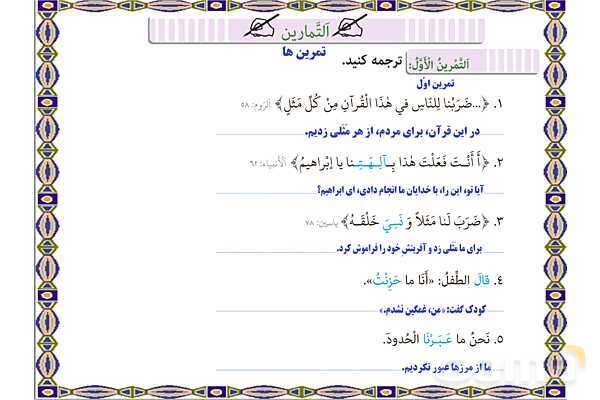 اَلتَّمارين
تمرین ها
اَلتَّمْرينُ الْأَوَّلُ: ترجمه کنید.
تمرین اوّل
١. ﴿...ضَرَبْنا لِلنّاسِ في هٰذَا الْقُرآنِ مِنْ كُلِّ مَثَلٍ﴾ الرّوم: ٥٨
در این قرآن، برای مردم، از هر مثَلی زدیم.
٢. ﴿أَ أَنْتَ فَعَلْتَ هٰذا بِـآلِـهَـتِـنا يا إبْراهيمُ﴾ الْأنبياء: ٦٢
آیا تو، این را، با خدایان ما انجام دادی، ای ابراهیم؟
٣. ﴿ضَرَبَ لَنا مَثَلاً وَ نَـسِـيَ خَلْقَـهُ﴾ ياسين: ٧٨
برای ما مثَلی زد و آفرینشِ خود را فراموش کرد.
٤. قالَ الطِّفلُ: «أَنَا ما حَزِنْتُ».
کودک گفت: «من، غمگین نشدم.»
٥. نَحنُ ما عَـبَـرْنَا الْحُدودَ.
ما از مرزها عبور نکردیم.